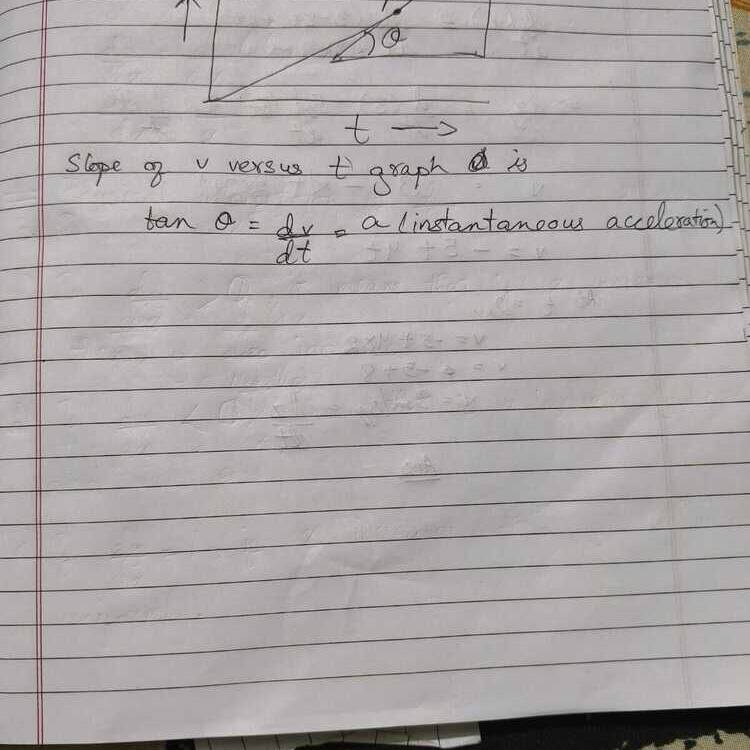 θ
t →
Slope of v versus t graph is
tan θ = dv/dt = a (instantaneous acceleration)